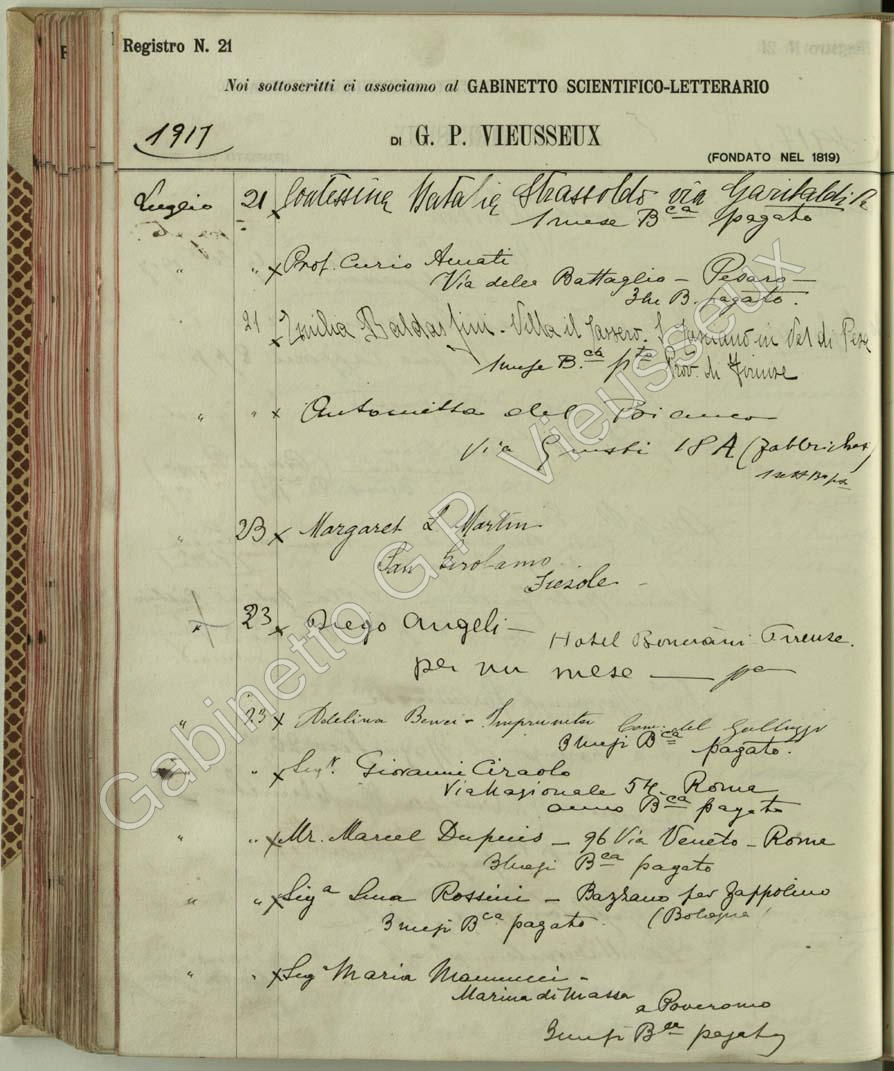 Registro N. 21
Noi sottoscritti ci associamo al GABINETTO SCIENTIFICO-LETTERARIO
1917
DI G. P. VIEUSSEUX
(FONDATO NEL 1819)
Luglio 21 x Contessina Natalia Strassoldo via Garibaldi
1 mese Bca pagato
" " x Prof. Curio Amati
Via delle Battaglio — Pesaro —
3 B. pagato.
21 x Emilia Baldasfini - Villa il Sassero. S. Casciano in Val di Pesa
1 mese B.ca pto Prov. di Firenze
" " x Antonietta del Bianco
Via Giusti 18 A
" 23 x Margaret L Martin
San Girolamo
Fiesole —
" 23 x Diego Angeli — Hotel Bonciani Firenze.
per un mese —
" 23 x Adelina Benci - Impruneta del
3 mesi Bca pagato.
" " x Sigr. Giovanni Ciraolo
Via Nazionale 54. Roma
anno Bca pagato
" " x Mr. Marcel Dupuis — 96 Via Veneto — Rome
3 mesi Bca pagato
" " x Siga Rossini — Bazzano per Zappolino
3 mesi Bca pagato. (Bologna)
" " x Siga Maria —
Marina di Massa
a Poveromo
3 mesi Bca pagato
Gabinetto G.P. Vieusseux